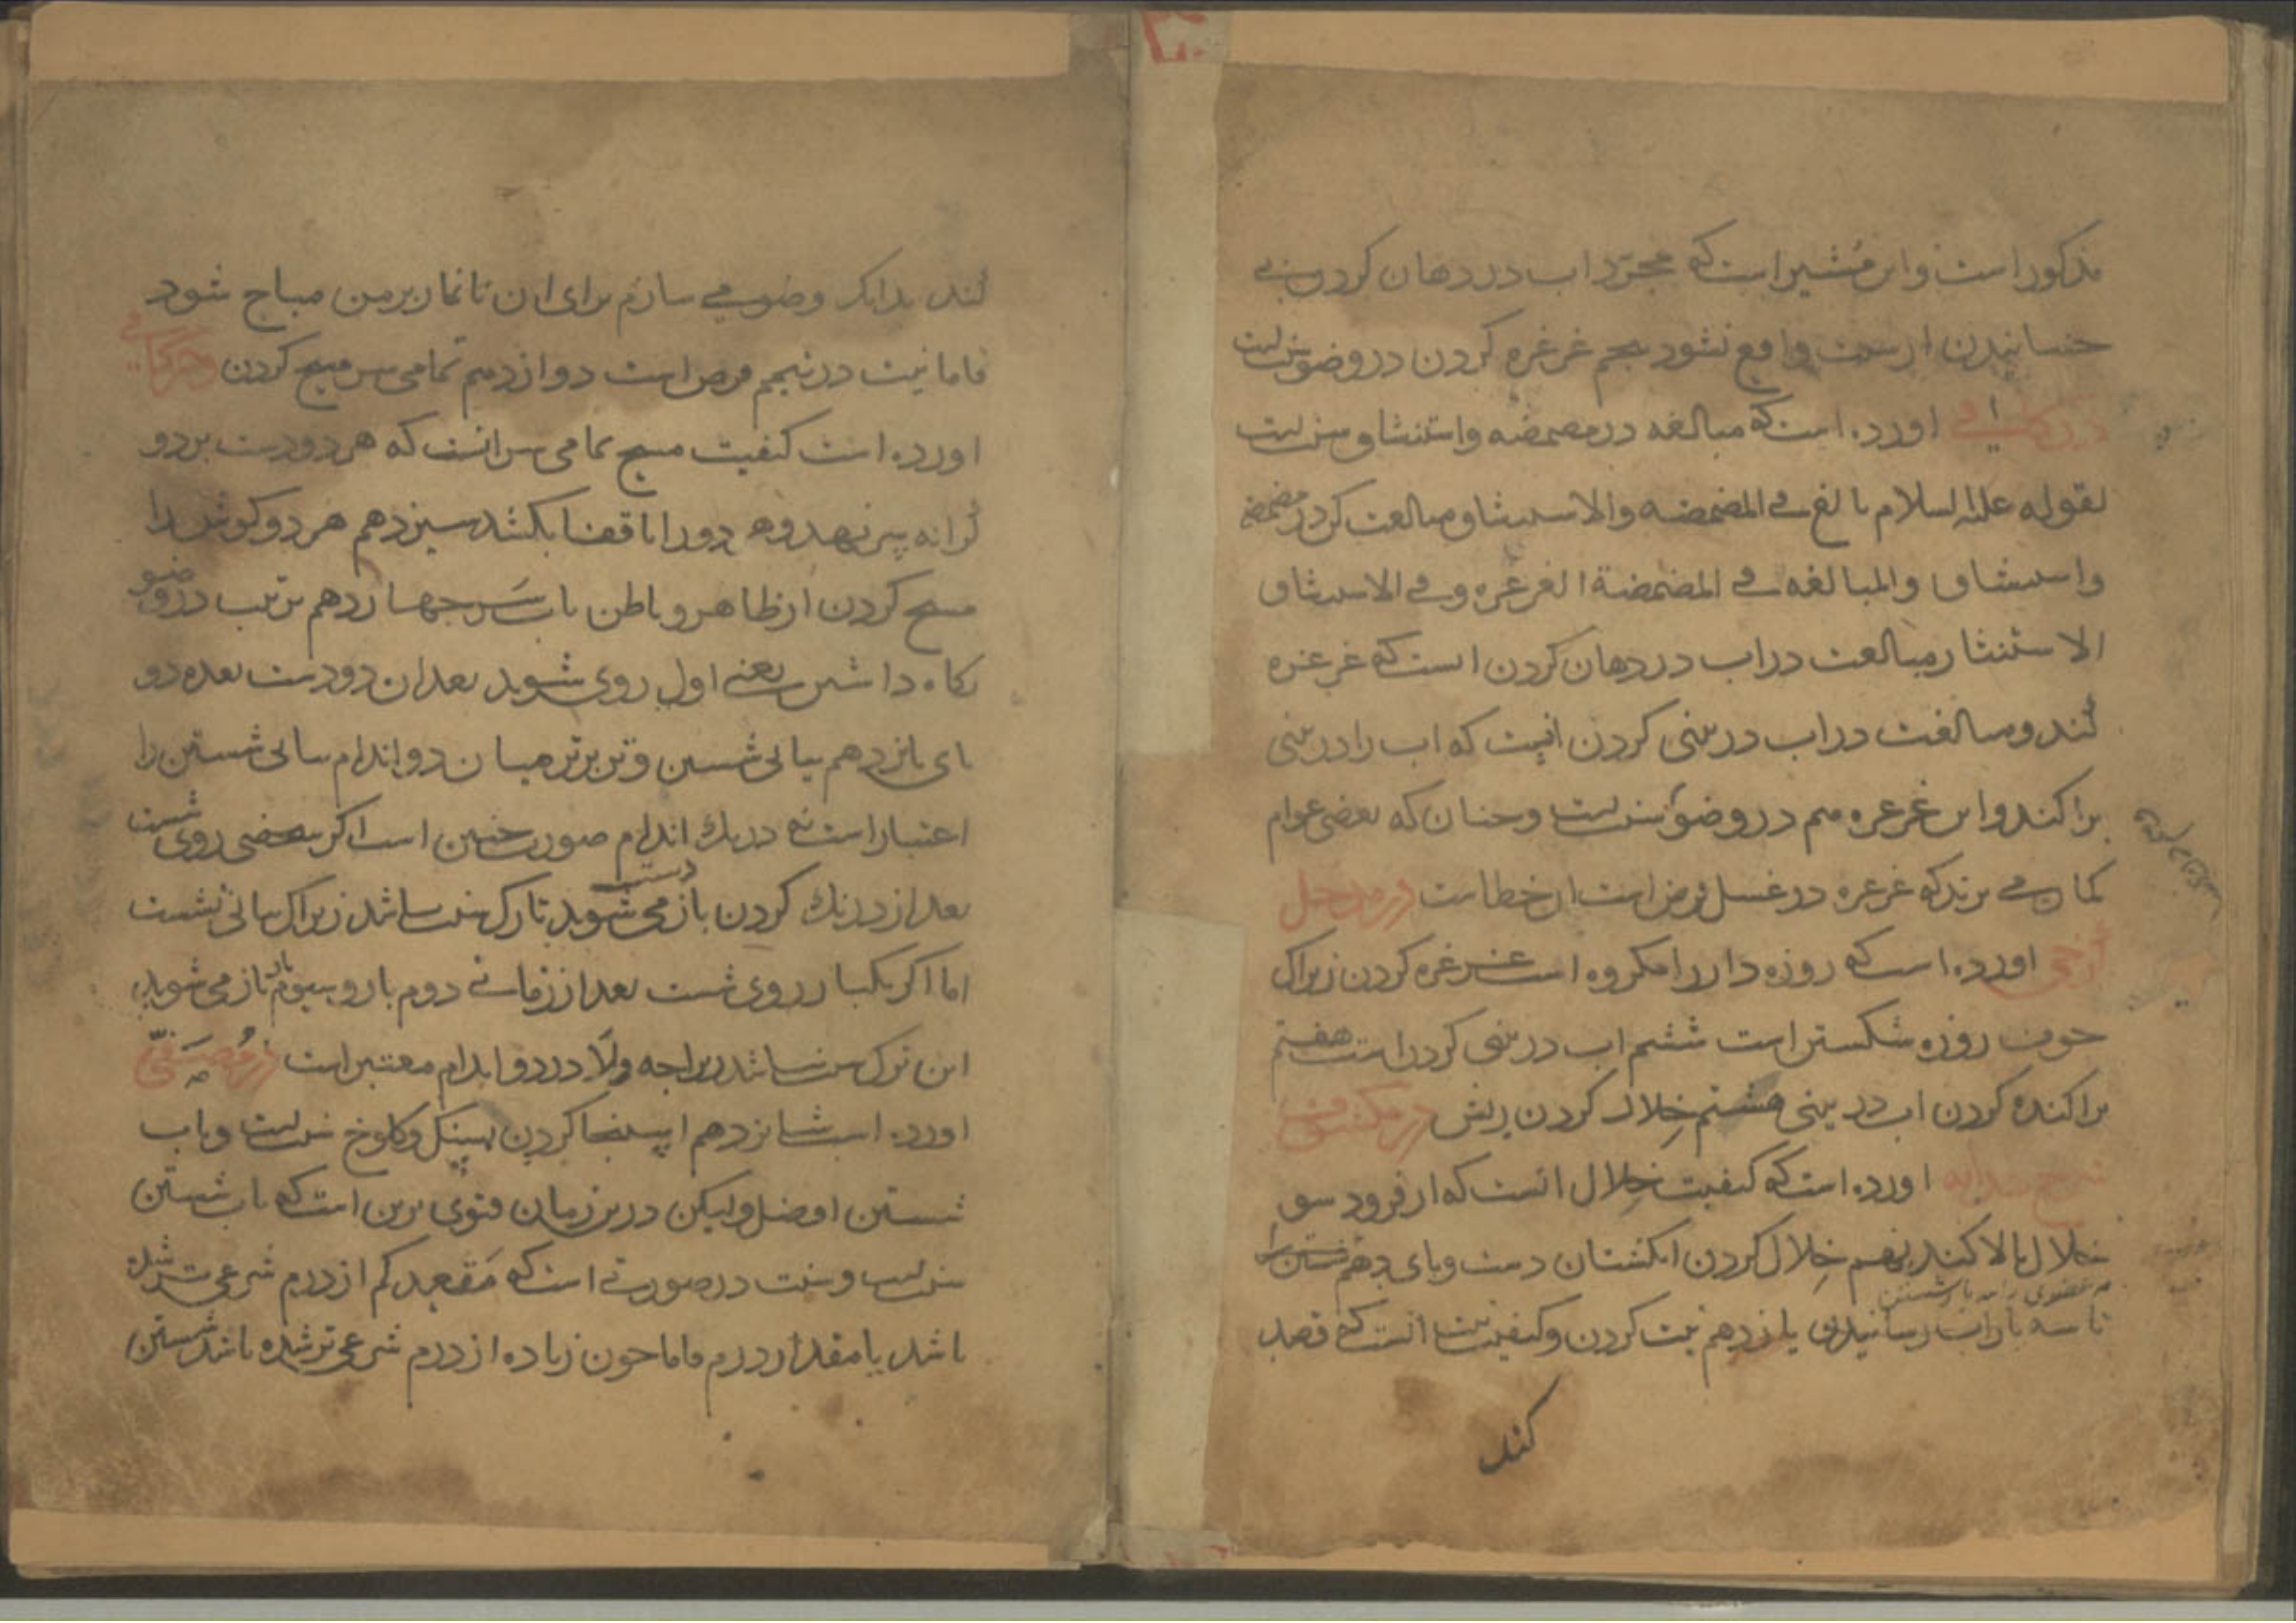 مذکور است و این مُشیر است که مجرّد اب در دهان کردن بی
جنبانیدن از سنت واقع نشود پنجم غرغره کردن در وضو سنتست
در کافی اورده است که مبالغه در مضمضه واستنشاق سنتست
لقوله علیه السلام بالغ فی المضمضه والاستنشاق مبالغت کن در مضمضه
واستنشاق والمبالغه فی المضمضة الغرغره وفی الاستنشاق
الاستنثار مبالغت در اب در دهان کردن انست که غرغره
کند ومبالغت در اب در بینی کردن انیست که اب را در بینی
پراکند و این غرغره هم در وضو سنتست وچنان که بعضی عوام
کمان می برند که غرغره در غسل فرض است ان خطاست در مدخل
اورده است که روزه دار را مکروه است غرغره کردن زیراک
خوف روزه شکستن است ششم اب در بینی کردن است هفتم
پراکنده کردن اب در بینی هشتم خِلال کردن ریش در مکنون
شرح هدایه اورده است که کیفیت خِلال انست که از فرود سو
خلال بالا کند نهم خِلال کردن انکشتان دست وپای دهم شستن
تا سه بار اب رسانیدن یازدهم نیت کردن وکیفیت نیت انست که قصد
کند
کند بدانک وضو می سازم برای ان تا نماز بر من مباح شود
فاما نیت در تیمم فرض است دوازدهم تمامی سر مسح کردن ودر کافی
اورده است کیفیت مسح تمامی سر انست که هر دو دست بر دو
کرانه پیش نهد وهر دو را تا قفا بکشد سیزدهم هر دو کوش را
مسح کردن از ظاهر و باطن باب سَر جهاردهم ترتیب در وضو
نکاه داشتن یعنی اول روی شوید بعد ان دو دست بعده دو
پای پانزدهم بیاپی شستن و میان دو اندام بیاپی شستن را
اعتبار است نه در یک اندام صورت چنین است اکر شخصی روی شست
بعد از درنک کردن باز دست می شوید تارک سنت باشد زیراک بیاپی نشست
اما اکر یکبار روی شست بعد از زمانی دوم بار و سیوم بار باز می شوید
این ترک سنت نباشد زیراچه وِلا در دو اندام معتبر است در مُصَفّی
اورده است شانزدهم استنجا کردن بسنک وکلوخ سنتست وباب
شستن افضل ولیکن درین زمان فتوی برین است که باب شستن
سنتست وسنت در صورتی است که مَقعد کم از درم شرعی تر شده
باشد یا مقدار درم فاما چون زیاده از درم شرعی تر شده باشد شستن